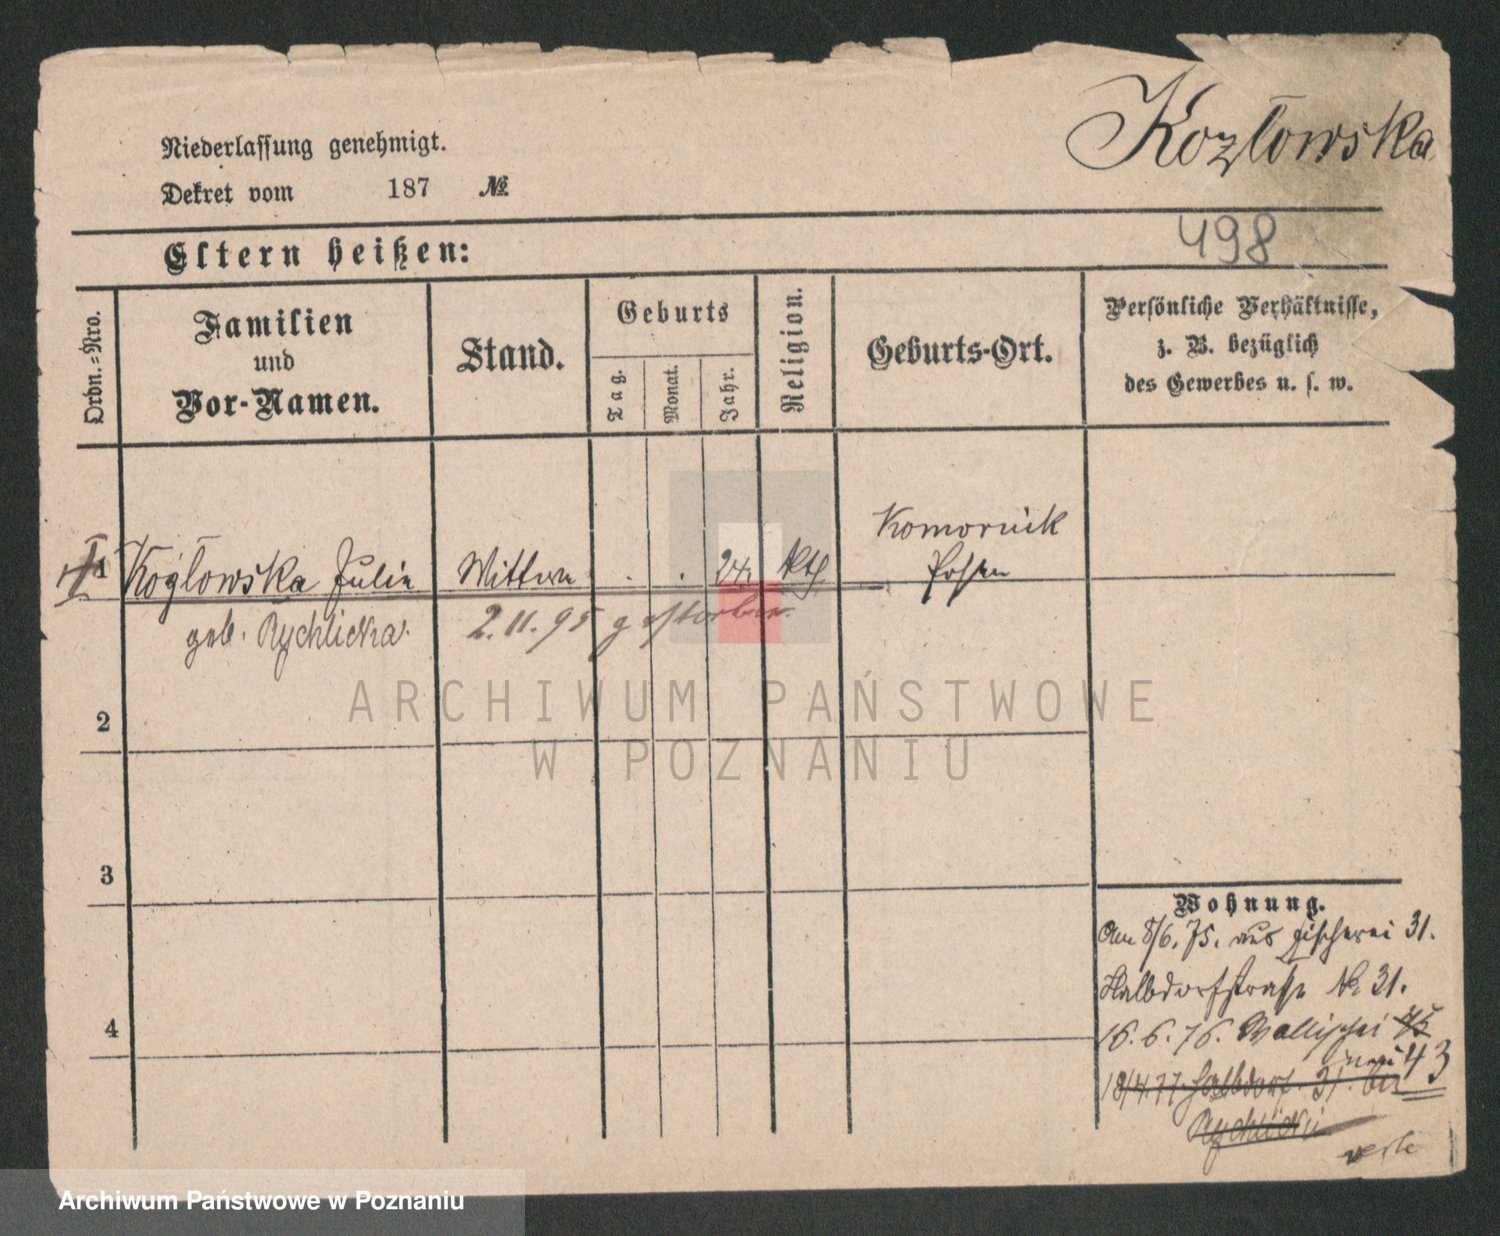 Kozłowska
Niederlassung genehmigt.
Dekret vom 187 №
498
Eltern heißen:
Ordn.-Nro.
Familien
und
Vor-Namen.
Stand.
Geburts
Tag.
Monat.
Jahr.
Religion.
Geburts-Ort.
Persönliche Verhältnisse,
z. B. bezüglich
des Gewerbes u. s. w.
1 Kozłowska Julia Wittwe kth Komornik
Posen
geb. Rychlicka. 2.11.95 gestorben.
2
3
4
Wohnung.
Am 8/6. 75. aus Fischerei 31.
Halbdorfstraße № 31.
16.6.76. Wallischei 75
neu 43
18/4.77 Halbdorf. 31. bei
Rychlicki
ARCHIWUM PAŃSTWOWE
W POZNANIU
Archiwum Państwowe w Poznaniu